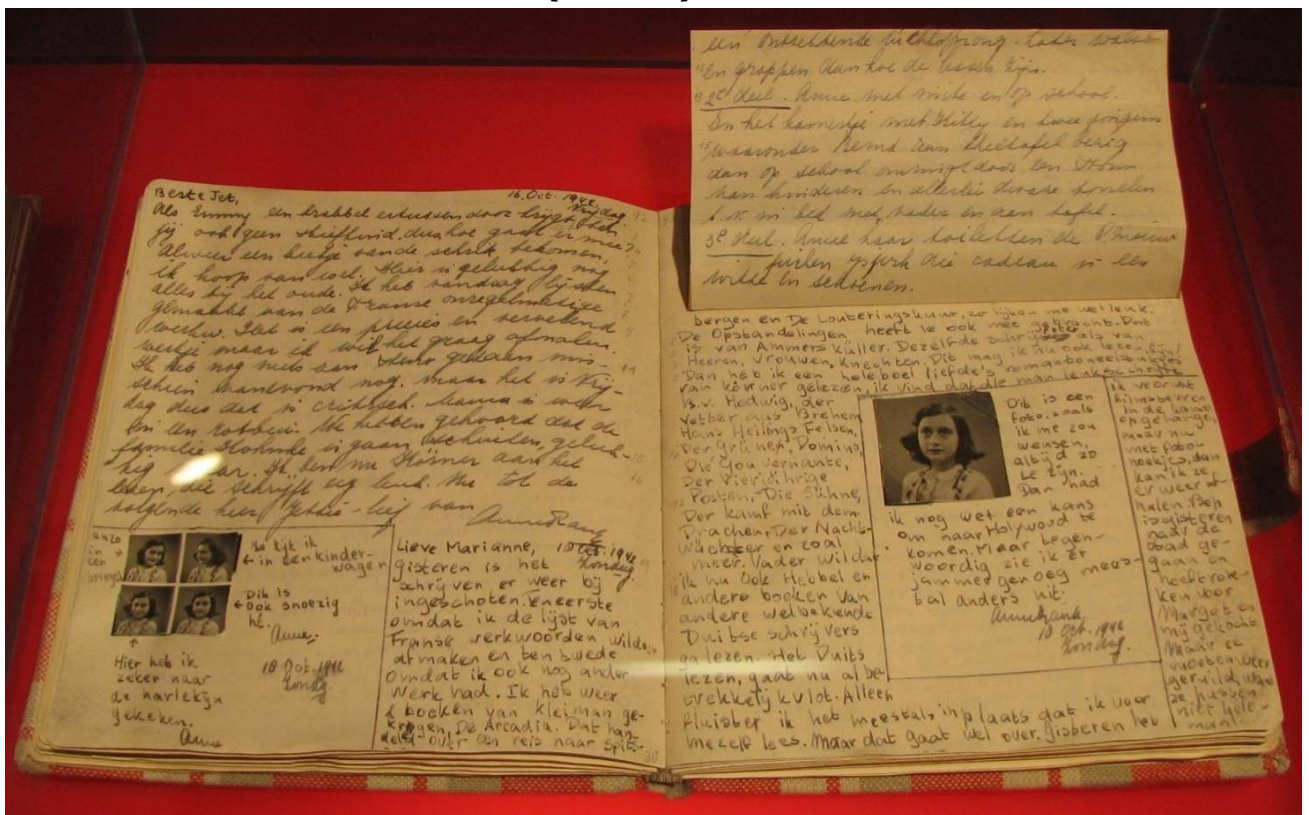 Beste Jet,
16. Oct. 1942
Vrijdag
Als Emmy een krabbel ertussen door krijgt ben
jij ook geen stiefkind, dus hoe gaat er mee?
Alweer een beetje van de schrik bekomen,
ik hoop van wel. Hier is gelukkig nog
alles bij het oude. Ik heb vandaag lijsten
gemaakt van de Franse onregelmatige
werkw. Het is een precies en vervelend
werkje maar ik wil het graag afmaken.
Ik heb nog niets aan steno gedaan mis-
schien vanavond nog, maar het is Vrij-
dag dus dat is critisch. Mama is weer
en
We hebben gehoord dat de
familie
is gaan schuilen, geluk-
kig maar. Ik ben nu Körner aan het
lezen, die schrijft erg leuk. Nu tot de
volgende keer
lief van
Anne Frank
in een
Zo kijk ik
in een kinder-
wagen
Dit is
ook snoezig
hè.
Anne.
18 Oct. 1942
Zondag
Hier heb ik
zeker naar
de harlekijn
gekeken.
Anne
Lieve Marianne,
18 Oct. 1942
Zondag
gisteren is het
schrijven er weer bij
ingeschoten. Eneerste
omdat ik de lijst van
Franse werkwoorden wilde
afmaken en ten tweede
omdat ik ook nog ander
werk had. Ik heb weer
2 boeken van Kleiman ge-
kregen, De Arcadia. Dat han-
deld over een reis naar Spits-
een ontzettende luchtsprong. Later walsen
en grappen dan hoe de lessen zijn.
2e deel. Anne met visite en op school.
In het kamertje met Kitty en twee jongens
waaronder Bernd aan theetafel bezig
dan op school omringt door een
kinderen en allerlei
b.v. in bed met vader en aan tafel.
3e deel. Anne haar toiletten de
die cadeau is een
witte en schoenen.
bergen en De Louteringskuur, zo lijken me wel leuk.
De Opstandelingen, heeft ie ook mee gebracht. Dat
is van Ammers Küller. Dezelfde schrijfster als van
Heeren, Vrouwen, Knechten. Dit mag ik nu ook lezen, fijn!
Dan heb ik een heleboel liefde's romantoneelstukjes
van körner gelezen, ik vind dat die man leuk schrijft.
B.v. Hedwig, der
Vetter aus Brehem
Hans Heilings Felsen,
Der Grünen, Domino,
Die Gouvernante,
Der Vierjährige
Posten, Die Sühne,
Der kamf mit dem
Drachen, Der Nacht-
wächter en zoal
meer. Vader wil dat
ik nu ook Hebbel en
andere boeken van
andere welbekende
Duitse schrijvers
ga lezen. Het Duits
lezen, gaat nu al be-
trekkelijk vlot. Alleen
fluister ik het meestal, inplaats dat ik voor
mezelf lees. Maar dat gaat wel over. gisteren heb
Dit is een
foto, zoals
ik me zou
wensen,
altijd zo
te zijn.
Dan had
ik nog wel een kans
om naar Holywood te
komen. Maar tegen-
woordig zie ik er
jammer genoeg mees-
tal anders uit.
Annefrank
18 Oct. 1942
Zondag.
ik
filmsterren
in de kamer
opgehangen
maar nu
met foto-
hoekjes, dan
kan ik ze
er weer af-
halen. Bep
is gisteren
naar de
stad ge-
gaan en
heeft rok-
ken voor
Margot en
mij gekocht.
Maar ze
moeten weer
geruild, want
ze passen
niet hele-
maal.